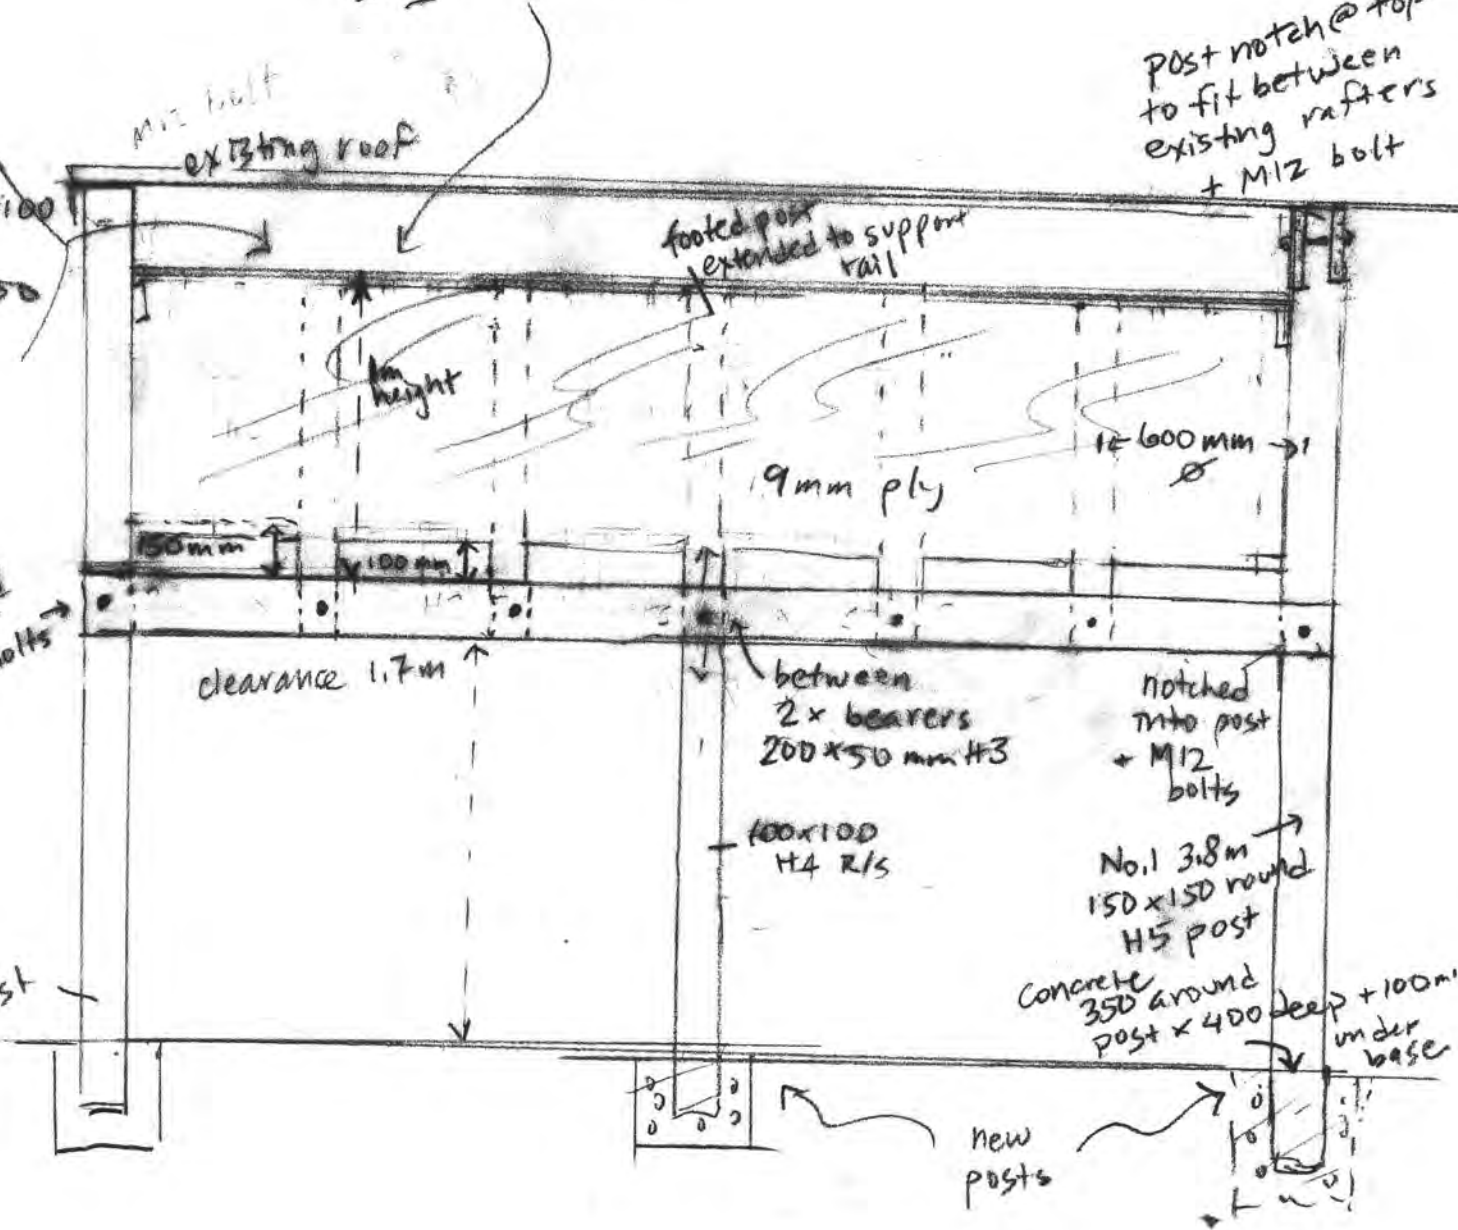 M12 bolt
existing roof
post notch @ top
to fit between
existing rafters
+ M12 bolt
100
footed post
extended to support
rail
1m
height
600mm
9mm ply
150mm
100mm
bolts
clearance 1.7m
between
2x bearers
200x50mm H3
notched
into post
+ M12
bolts
100x100
H4 R/S
No.1 3.8m
150x150 round
H5 post
concrete
350 around
post x 400 deep + 100m
under
base
new
posts